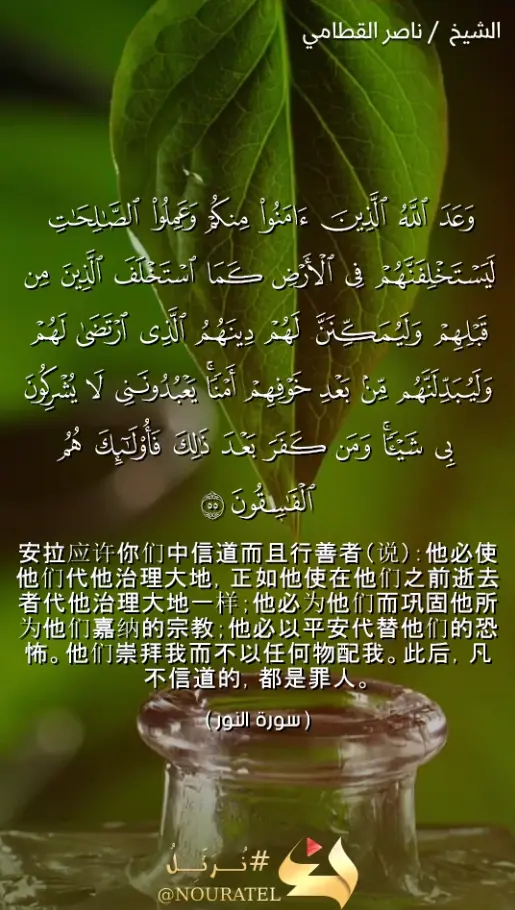 الشيخ / ناصر القطامي
وَعَدَ ٱللَّهُ ٱلَّذِينَ ءَامَنُوا۟ مِنكُمْ وَعَمِلُوا۟ ٱلصَّـٰلِحَـٰتِ
لَيَسْتَخْلِفَنَّهُمْ فِى ٱلْأَرْضِ كَمَا ٱسْتَخْلَفَ ٱلَّذِينَ مِن
قَبْلِهِمْ وَلَيُمَكِّنَنَّ لَهُمْ دِينَهُمُ ٱلَّذِى ٱرْتَضَىٰ لَهُمْ
وَلَيُبَدِّلَنَّهُم مِّنۢ بَعْدِ خَوْفِهِمْ أَمْنًا ۚ يَعْبُدُونَنِى لَا يُشْرِكُونَ
بِى شَيْـًٔا ۚ وَمَن كَفَرَ بَعْدَ ذَٰلِكَ فَأُو۟لَـٰٓئِكَ هُمُ
ٱلْفَـٰسِقُونَ ۝٥٥
安拉应许你们中信道而且行善者(说):他必使
他们代他治理大地, 正如他使在他们之前逝去
者代他治理大地一样;他必为他们而巩固他所
为他们嘉纳的宗教;他必以平安代替他们的恐
怖。他们崇拜我而不以任何物配我。此后, 凡
不信道的, 都是罪人。
(سورة النور)
#نُرتِّلُ
@NOURATEL